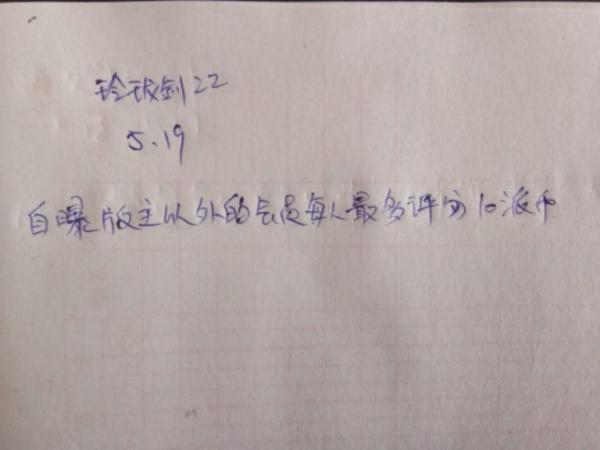 玲珑剑22
5.19
自曝版主以外的会员每人最多评分10派币